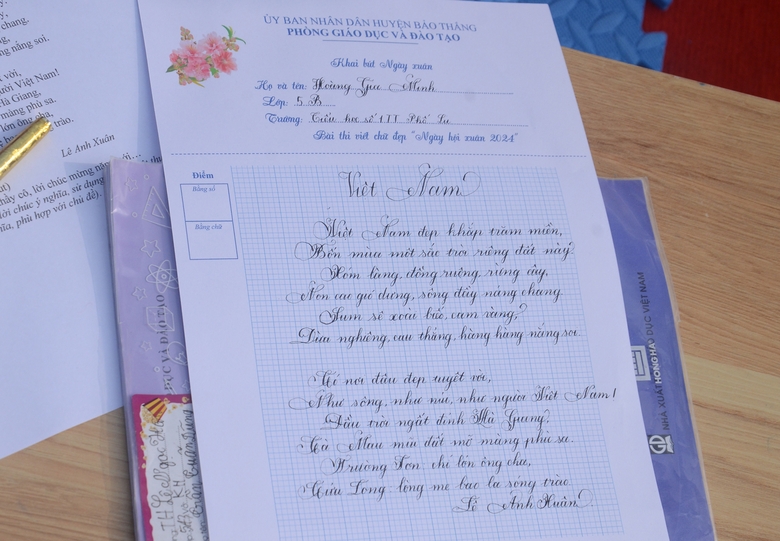 chang,
ng nắng soi.
vời,
ười Việt Nam!
Hà Giang,
màng phù sa.
lớn ông cha,
trào.
Lê Anh Xuân
ỦY BAN NHÂN DÂN HUYỆN BẢO THẮNG
PHÒNG GIÁO DỤC VÀ ĐÀO TẠO
Khai bút Ngày xuân
Họ và tên: Hoàng Gia Minh
Lớp: 5 B
Trường: Tiểu học số 1 TT Phố Lu
Bài thi viết chữ đẹp "Ngày hội xuân 2024"
Điểm
Bằng số
Bằng chữ
Việt Nam
Việt Nam đẹp khắp trăm miền,
Bốn mùa một sắc trời riêng đất này.
Xóm làng, đồng ruộng, rừng cây,
Non cao gió dựng, sông đầy nắng chang.
Sum sê xoài biếc, cam vàng,
Dừa nghiêng, cau thẳng, hàng hàng nắng soi.
Có nơi đâu đẹp tuyệt vời,
Như sông, như núi, như người Việt Nam!
Đầu trời ngất đỉnh Hà Giang,
Cà Mau mũi đất mỡ màng phù sa.
Trường Sơn chí lớn ông cha,
Cửu Long lòng mẹ bao la sóng trào.
Lê Anh Xuân
DỤC VÀ ĐÀO TẠO
NHÀ XUẤT DỤC VIỆT NAM
HỒNG HÀ